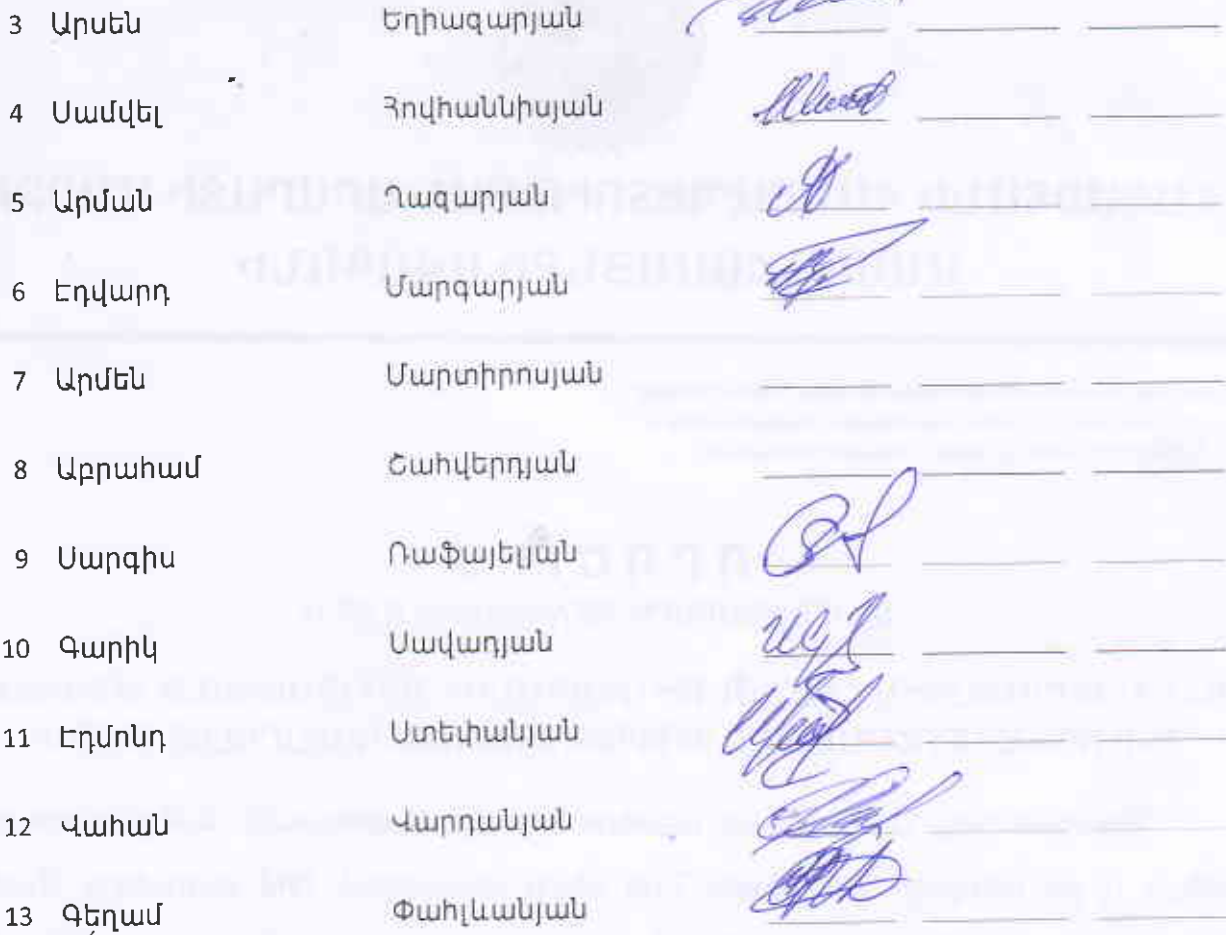 3 Արսեն Եղիազարյան
4 Սամվել Հովհաննիսյան
5 Արման Ղազարյան
6 Էդվարդ Մարգարյան
7 Արմեն Մարտիրոսյան
8 Աբրահամ Շահվերդյան
9 Սարգիս Ռաֆայելյան
10 Գարիկ Սավադյան
11 Էդմոնդ Ստեփանյան
12 Վահան Վարդանյան
13 Գեղամ Փահլևանյան